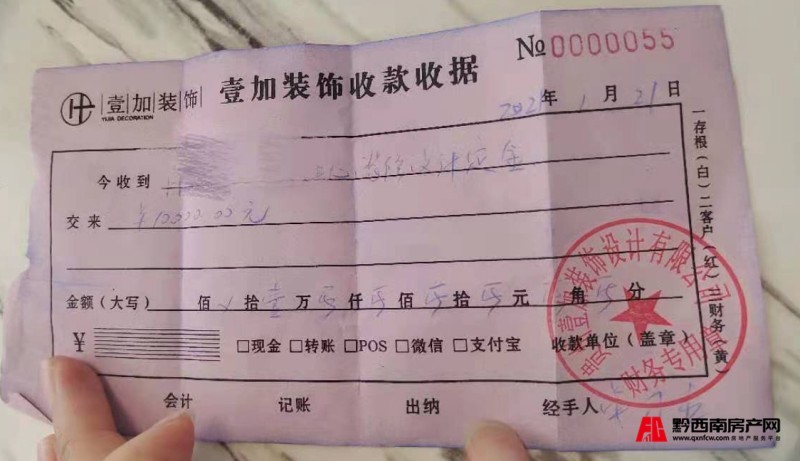 №0000055
壹加装饰
YIJIA DECORATION
壹加装饰收款收据
2021年1月21日
今收到 装修设计定金
交来 ¥10000.00元
金额(大写) 佰 拾壹万零仟零佰零拾零元 角 分
¥ □现金 □转账 □POS □微信 □支付宝 收款单位(盖章)
会计 记账 出纳 经手人
一存根(白)二客户(红)三财务(黄)
壹加装饰设计有限公司
财务专用章
黔西南房产网
www.qxnfcw.com 房地产服务平台